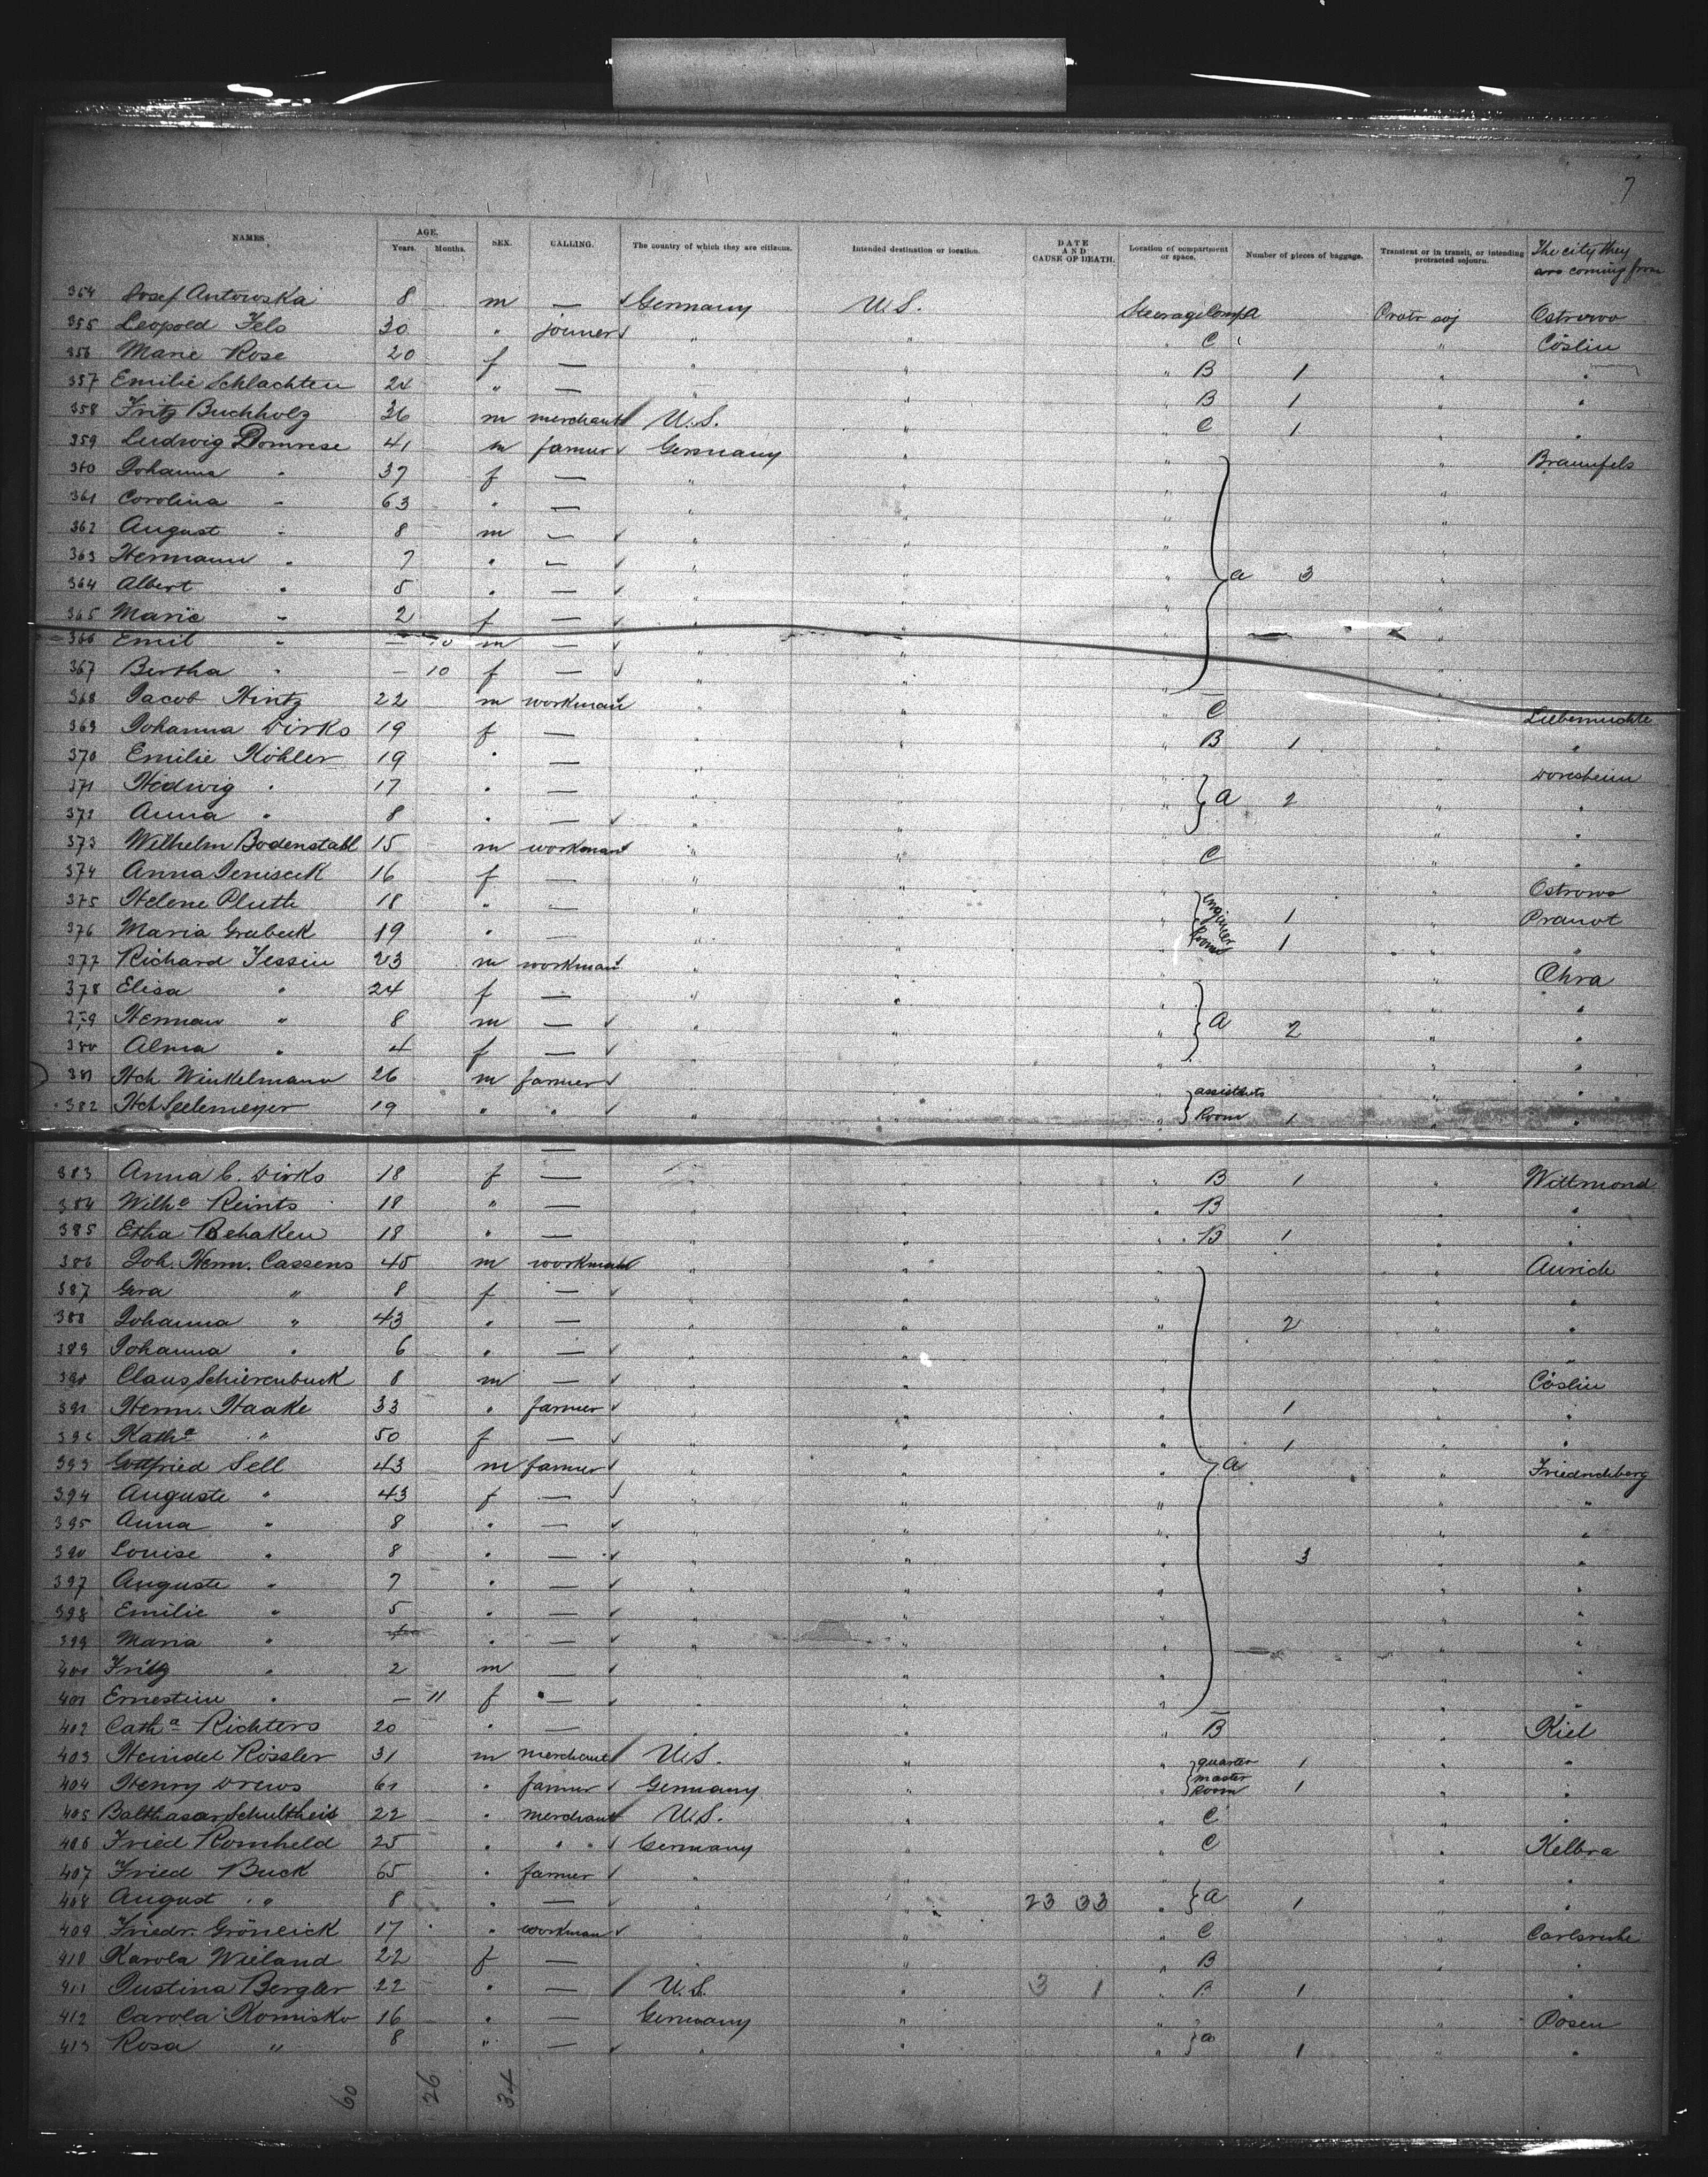 7
NAMES. AGE. SEX. CALLING. The country of which they are citizens. Intended destination or location. DATE AND CAUSE OF DEATH. Location of compartment or space. Number of pieces of baggage. Transient or in transit, or intending protracted sojourn. The city they are coming from
Years. Months.
354 Josef Antowska 8 m — Germany U.S. Steerage Comp A Protr soj Ostrowo
355 Leopold Fels 30 " joiner " " " C " Cöslin
356 Marie Rose 20 f — " " " B 1 " "
357 Emilie Schlachten 24 " — " " " B 1 " "
358 Fritz Buchholz 36 m merchant U.S. " C 1 " "
359 Ludwig Domrese 41 m farmer Germany " " " Braunfels
360 Johanna " 37 f — " " " "
361 Corolina " 63 " — " " " "
362 August " 8 m — " " " "
363 Hermann " 7 " — " " " a 3 "
364 Albert " 5 " — " " " "
365 Marie " 2 f — " " " "
366 Emil " — 10 m — " " "
367 Bertha " — 10 f — " " " "
368 Jacob Hintz 22 m workman " " " C "
369 Johanna Dirks 19 f — " " " B 1 " "
370 Emilie Köhler 19 " — " " " "
371 Hedwig " 17 " — " " " A 2 " "
372 Anna " 8 " — " " " " "
373 Wilhelm Bodenstabl 15 m workman " " C " "
374 Anna 16 f — " " " " Ostrowo
375 Helene Pluth 18 " — " " " engineer 1 "
376 Maria Grubeck 19 " — " " " Room 1 " "
377 Richard Jessin 23 m workman " " " " Ohra
378 Elisa " 24 f — " " " " "
379 Herman " 8 m — " " " A 2 " "
380 Alma " 4 f — " " " " "
381 Hch Winkelmann 26 m farmer " " " assistents " "
382 Hch Seelemeyer 19 " " " " " Room 1 " "
383 Anna C. Dirks 18 f — " " " B 1 " Wittmond
384 Wilhe Reints 18 " — " " " B " "
385 Etha Behaken 18 " — " " " B 1 " "
386 Joh. Herm. Cassens 45 m workman " " " " Aurich
387 Gra " 8 f — " " " " "
388 Johanna " 43 " — " " " 2 " "
389 Johanna " 6 " — " " " " "
390 Claus Schierenbuck 8 m — " " " " Cöslin
391 Herm. Haake 33 " farmer " " " 1 " "
392 Katha " 50 f — " " " 1 " "
393 Gottfried Sell 43 m farmer " " " a " Friedrichberg
394 Auguste " 43 f — " " " " "
395 Anna " 8 " — " " " " "
396 Louise " 8 " — " " " 3 " "
397 Auguste " 7 " — " " " " "
398 Emilie " 5 " — " " " " "
399 Maria " " — " " " " "
400 Fritz " 2 m — " " " " "
401 Ernestine " — 11 f — " " " " "
402 Catha Richters 20 " — " " " B " Kiel
403 Heindel Rössler 31 m merchant U.S. " " quarter 1 " "
404 Henry Drews 61 " farmer Germany " " master Room 1 " "
405 Balthasar Schultheis 22 " merchant U.S. " " C " "
406 Fried Romheld 25 " " Germany " " C " Kelbra
407 Fried Buck 65 " farmer " " " " "
408 August " 8 " — " " 23 33 " a 1 " "
409 Friedr. Gröneick 17 " workman " " " C " Carlsruhe
410 Karola Wieland 22 f — " " " B " "
411 Justina Bergler 22 " — U.S. " 3 1 " B 1 " "
412 Carola Komisko 16 " — Germany " " " Posen
413 Rosa " 8 " — " " " a 1 " "
60 26 34